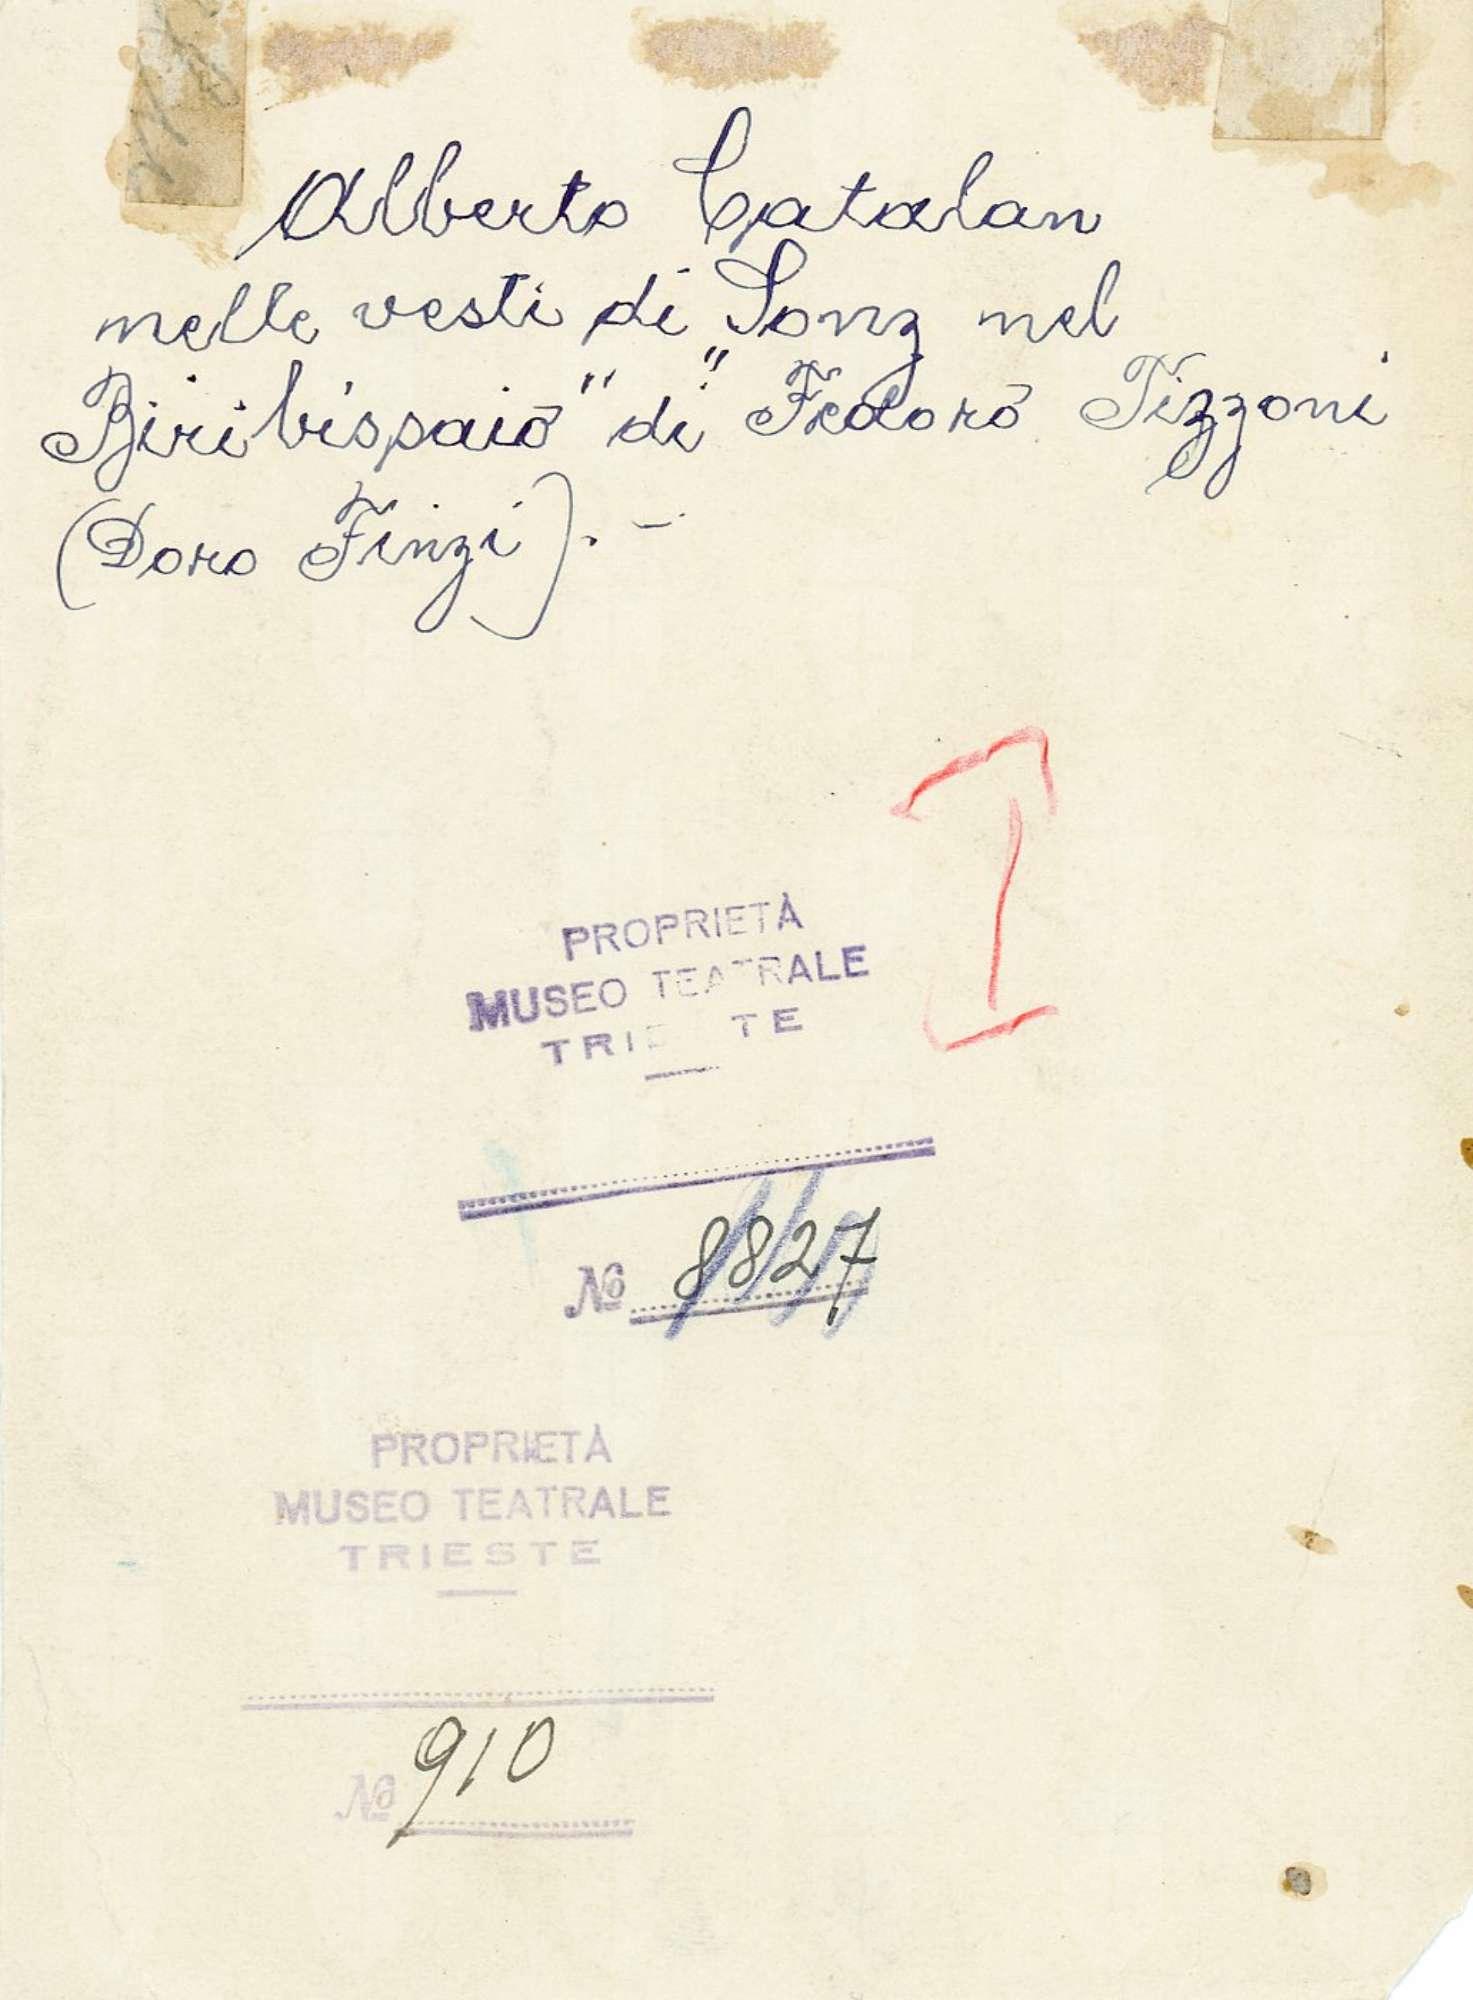 Alberto Catalan
nelle vesti di Sonz nel
"Biribissaio" di Fedoro Tizzoni
(Doro Finzi). -
PROPRIETÀ
MUSEO TEATRALE
TRIESTE
No 8827
PROPRIETÀ
MUSEO TEATRALE
TRIESTE
No 910